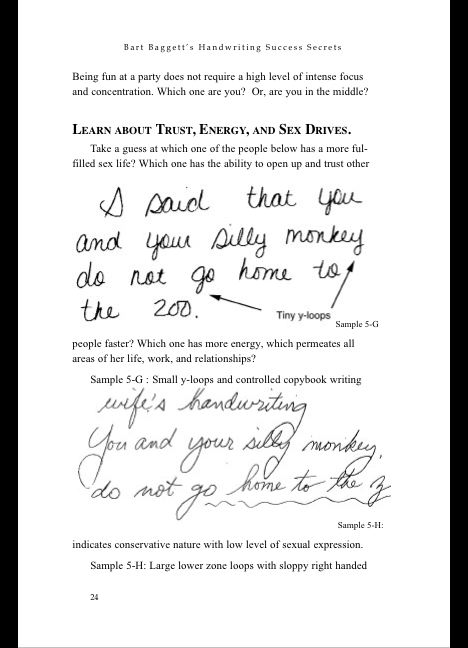 Bart Baggett's Handwriting Success Secrets
Being fun at a party does not require a high level of intense focus
and concentration. Which one are you?  Or, are you in the middle?
LEARN ABOUT TRUST, ENERGY, AND SEX DRIVES.
Take a guess at which one of the people below has a more ful-
filled sex life? Which one has the ability to open up and trust other
I said that you
and your silly monkey
do not go home to
the zoo.
Tiny y-loops
Sample 5-G
people faster? Which one has more energy, which permeates all
areas of her life, work, and relationships?
Sample 5-G : Small y-loops and controlled copybook writing
wife's handwriting
You and your silly monkey,
do not go home to the z
Sample 5-H:
indicates conservative nature with low level of sexual expression.
Sample 5-H: Large lower zone loops with sloppy right handed
24